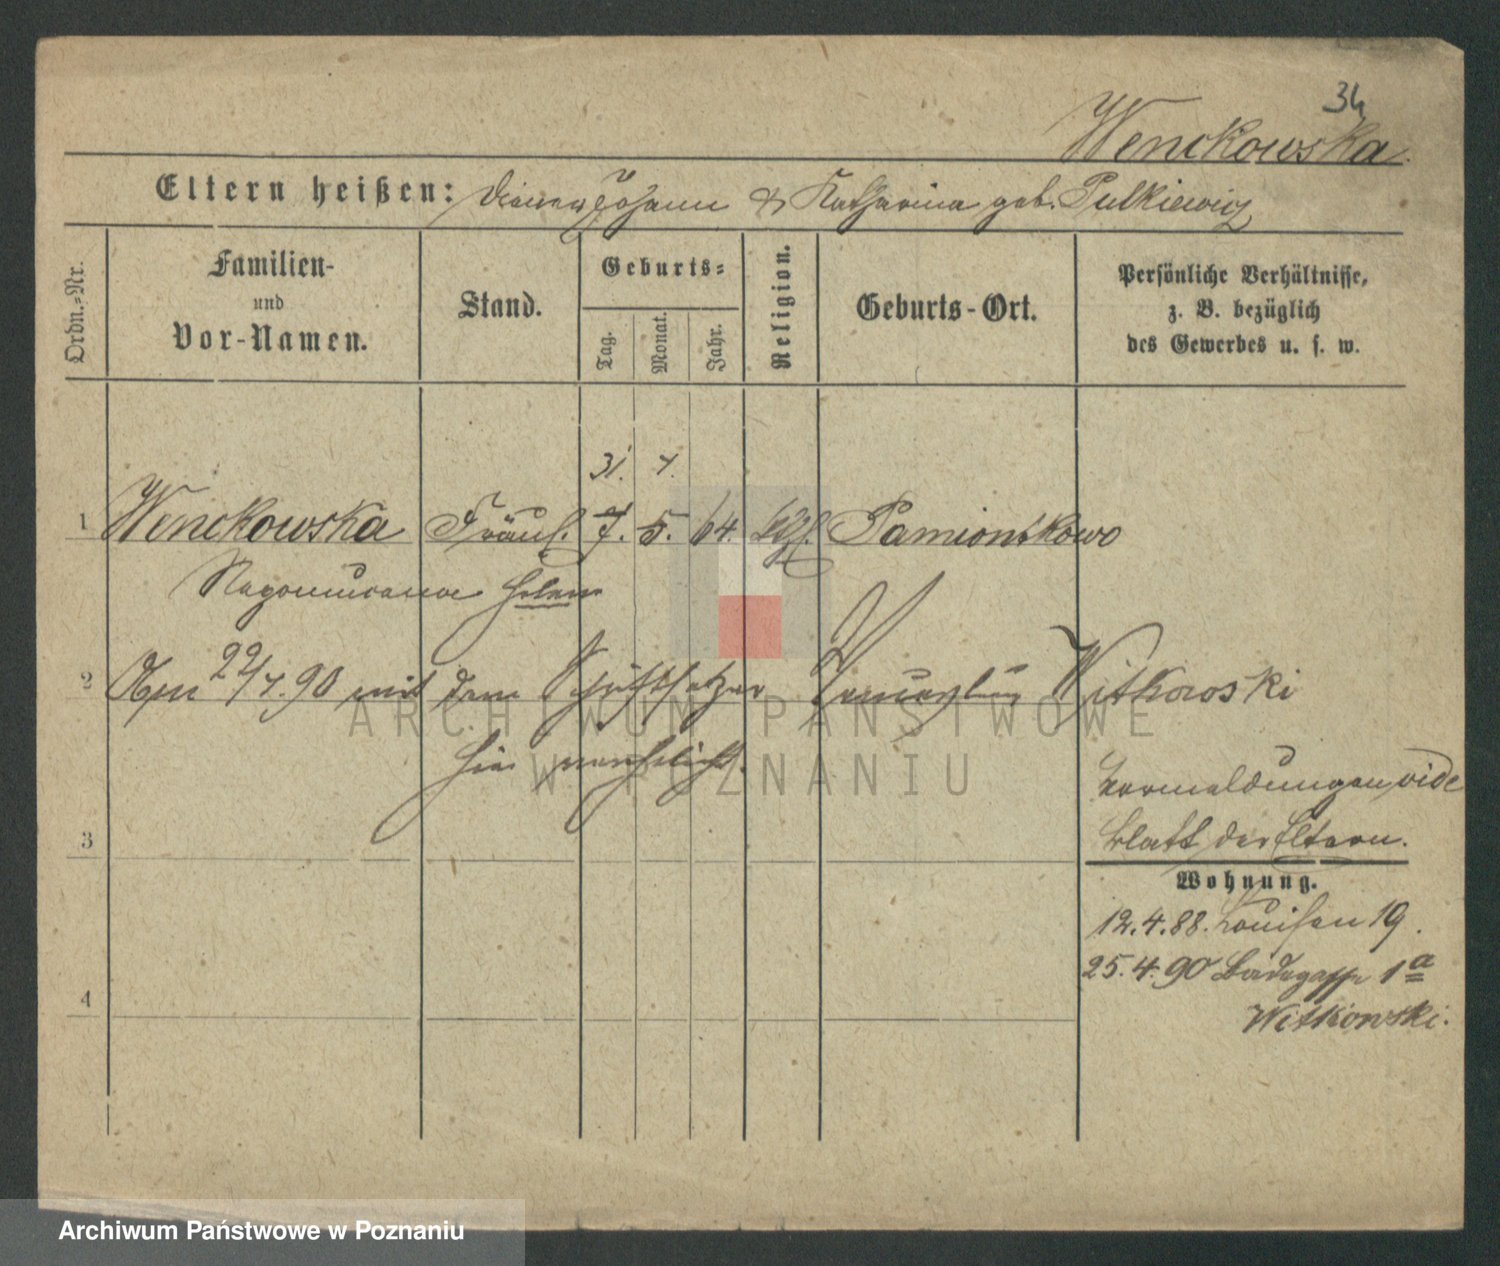 34
Wenckowska.
Eltern heißen: Diener Johann & Katharina geb. Pulkiewicz
Ordn.=Nr.
Familien-
und
Vor-Namen.
Stand.
Geburts=
Tag.
Monat.
Jahr.
Religion.
Geburts-Ort.
Persönliche Verhältnisse,
z. B. bezüglich
des Gewerbes u. s. w.
31. 7.
1 Wenckowska Fräul. 7. 5. 64. kth. Pamiontkowo
Helene
2 22/7.90 mit dem Schriftsetzer Witkowski
hier verehelicht.
Vormeldungen vide
3
Blatt der Eltern.
Wohnung.
12.4.88. Louisen 19.
25.4.90 Badegasse 1a
4
Witkowski.
ARCHIWUM PAŃSTWOWE
W POZNANIU
Archiwum Państwowe w Poznaniu